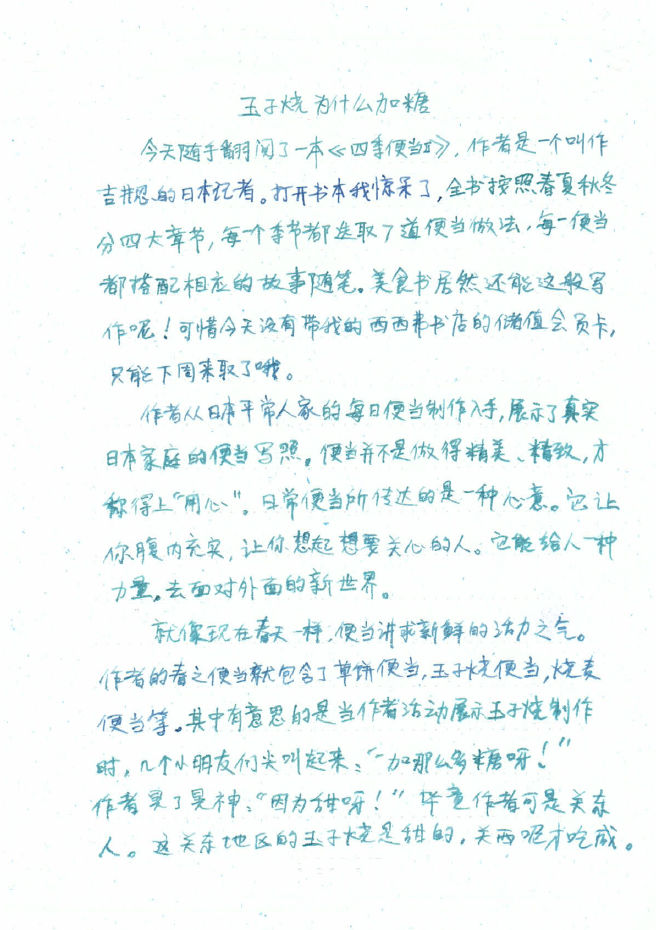 玉子烧为什么加糖
今天随手翻阅了一本《四季便当Ⅱ》，作者是一个叫作
吉井忍的日本记者。打开书本我惊呆了，全书按照春夏秋冬
分四大章节，每个季节都选取7道便当做法，每一便当
都搭配相应的故事随笔。美食书居然还能这般写
作呢！可惜今天没有带我的西西弗书店的储值会员卡，
只能下周来取了哦。
作者从日本平常人家的每日便当制作入手，展示了真实
日本家庭的便当写照。便当并不是做得精美、精致，才
称得上“用心”。日常便当所传达的是一种心意。它让
你腹内充实，让你想起想要关心的人。它能给人一种
力量，去面对外面的新世界。
就像现在春天一样，便当讲求新鲜的活力之气。
作者的春之便当就包含了草饼便当，玉子烧便当，烧麦
便当等。其中有意思的是当作者活动展示玉子烧制作
时，几个小朋友们尖叫起来：“加那么多糖呀！”
作者晃了晃神：“因为甜呀！”毕竟作者可是关东
人。这关东地区的玉子烧是甜的，关西呢才吃咸。